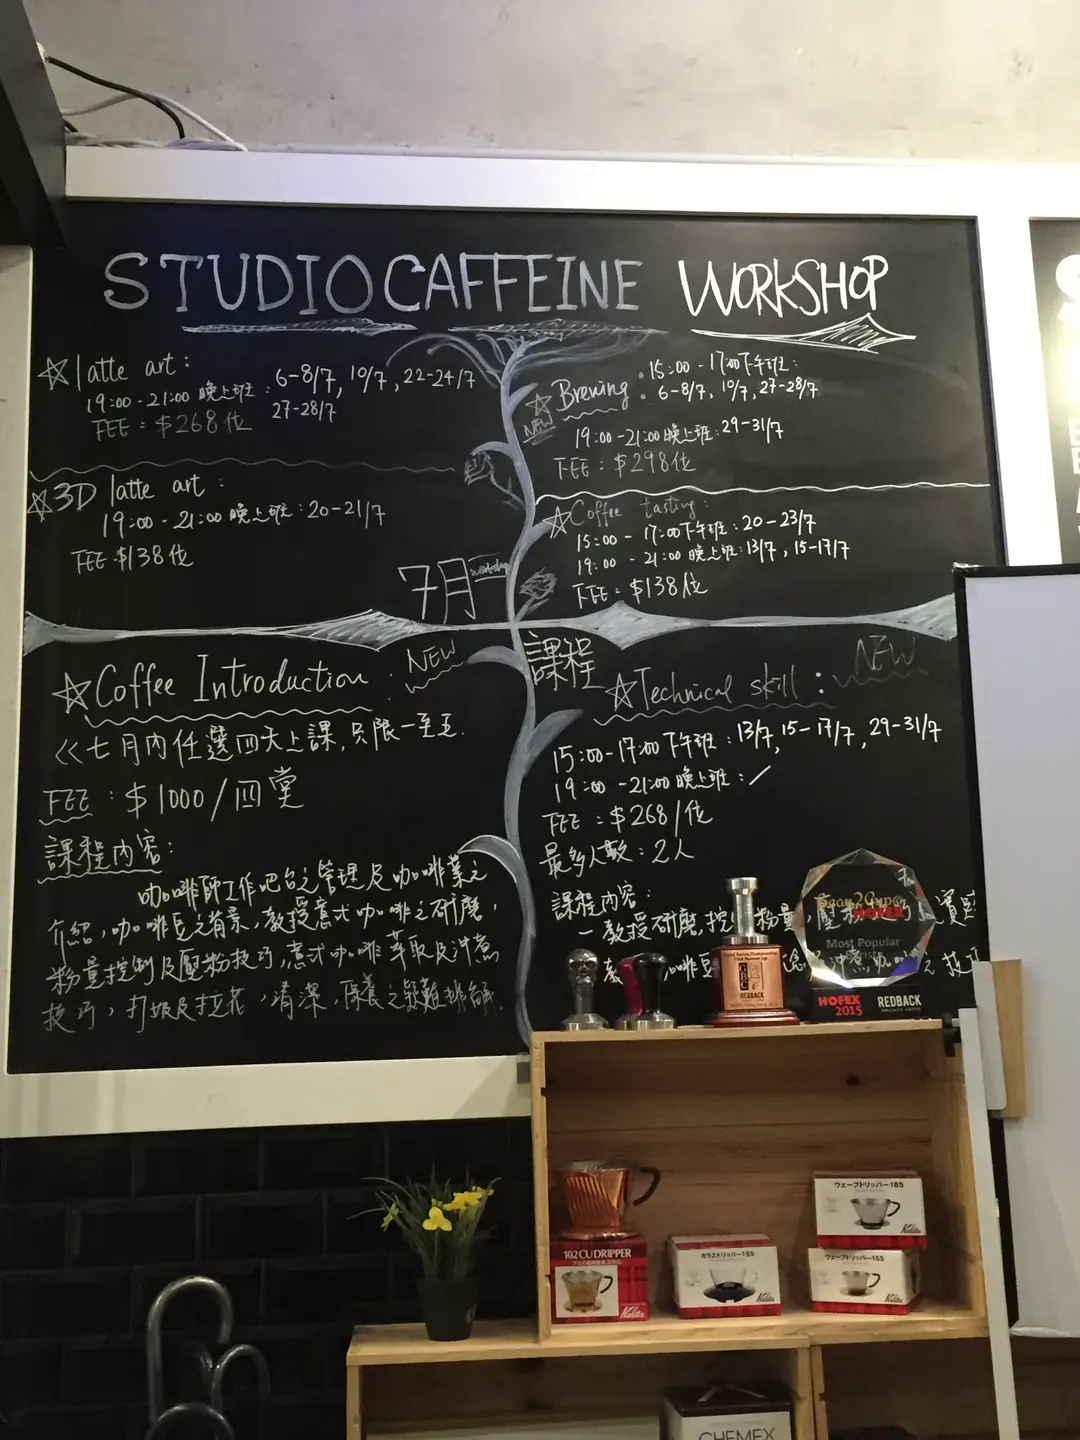 STUDIO CAFFEINE WORKSHOP
☆ latte art :
19:00 - 21:00 晚上班 : 6-8/7, 10/7, 22-24/7
27-28/7
FEE : $268 位
☆ 3D latte art :
19:00 - 21:00 晚上班 : 20-21/7
FEE $138 位
☆ Brewing : 15:00 - 17:00 下午班 :
6-8/7, 10/7, 27-28/7
NEW
19:00 - 21:00 晚上班 : 29-31/7
FEE : $298 位
☆ Coffee tasting :
15:00 - 17:00 下午班 : 20-23/7
19:00 - 21:00 晚上班 : 13/7, 15-17/7
FEE : $138 位
7月 workshop
課程
☆ Coffee Introduction : NEW
<< 七月內任選四天上課,只限一至五.
FEE : $1000/四堂
課程內容:
咖啡師工作吧台之管理及咖啡業之
介紹,咖啡豆之背景,教授意式咖啡之研磨,
粉量控制及壓粉技巧,意式咖啡萃取及沖煮
技巧,打奶及拉花,清潔,保養之疑難排解.
☆ Technical skill : NEW
15:00-17:00 下午班 : 13/7, 15-17/7, 29-31/7
19:00 - 21:00 晚上班 : /
FEE : $268/位
最多人數 : 2人
課程內容 :
一教授研磨,控 粉量,壓
咖啡豆 沖煮咖啡之技巧
HOFEX
Most Popular
HOFEX
2015
REDBACK
REDBACK
102 CU DRIPPER
Kalita
ガラスドリッパー155
Kalita
ウェーブドリッパー185
Kalita
ウェーブドリッパー155
Kalita
CHEMEX